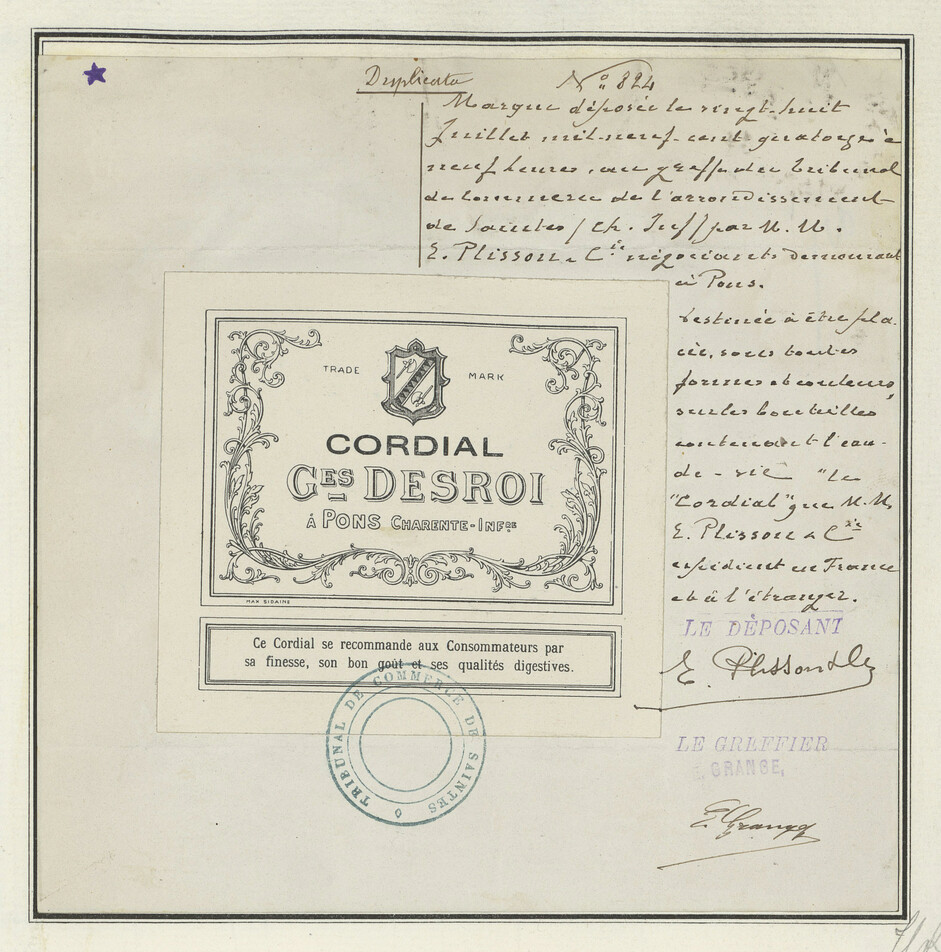 Duplicata
N° 824
Marque déposée le vingt-huit
Juillet mil-neuf-cent quatorze à
neuf heures, au greffe du tribunal
de commerce de l'arrondissement
de Saintes (Ch. Inf) par M. M.
E. Plisson & Cie négociants demeurant
à Pons.
Destinée à être pla-
cée, sous toutes
formes et couleurs,
sur les bouteilles
contenant l'eau-
de-vie "le
"Cordial" que M. M.
E. Plisson & Cie
expédient en France
et à l'étranger.
LE DÉPOSANT
E. Plisson & Cie
LE GREFFIER
E. GRANGE,
E. Grange
TRADE MARK
CORDIAL
GES DESROI
Á PONS CHARENTE-INFRE
MAX SIDAINE
Ce Cordial se recommande aux Consommateurs par
sa finesse, son bon goût et ses qualités digestives.
TRIBUNAL DE COMMERCE DE SAINTES